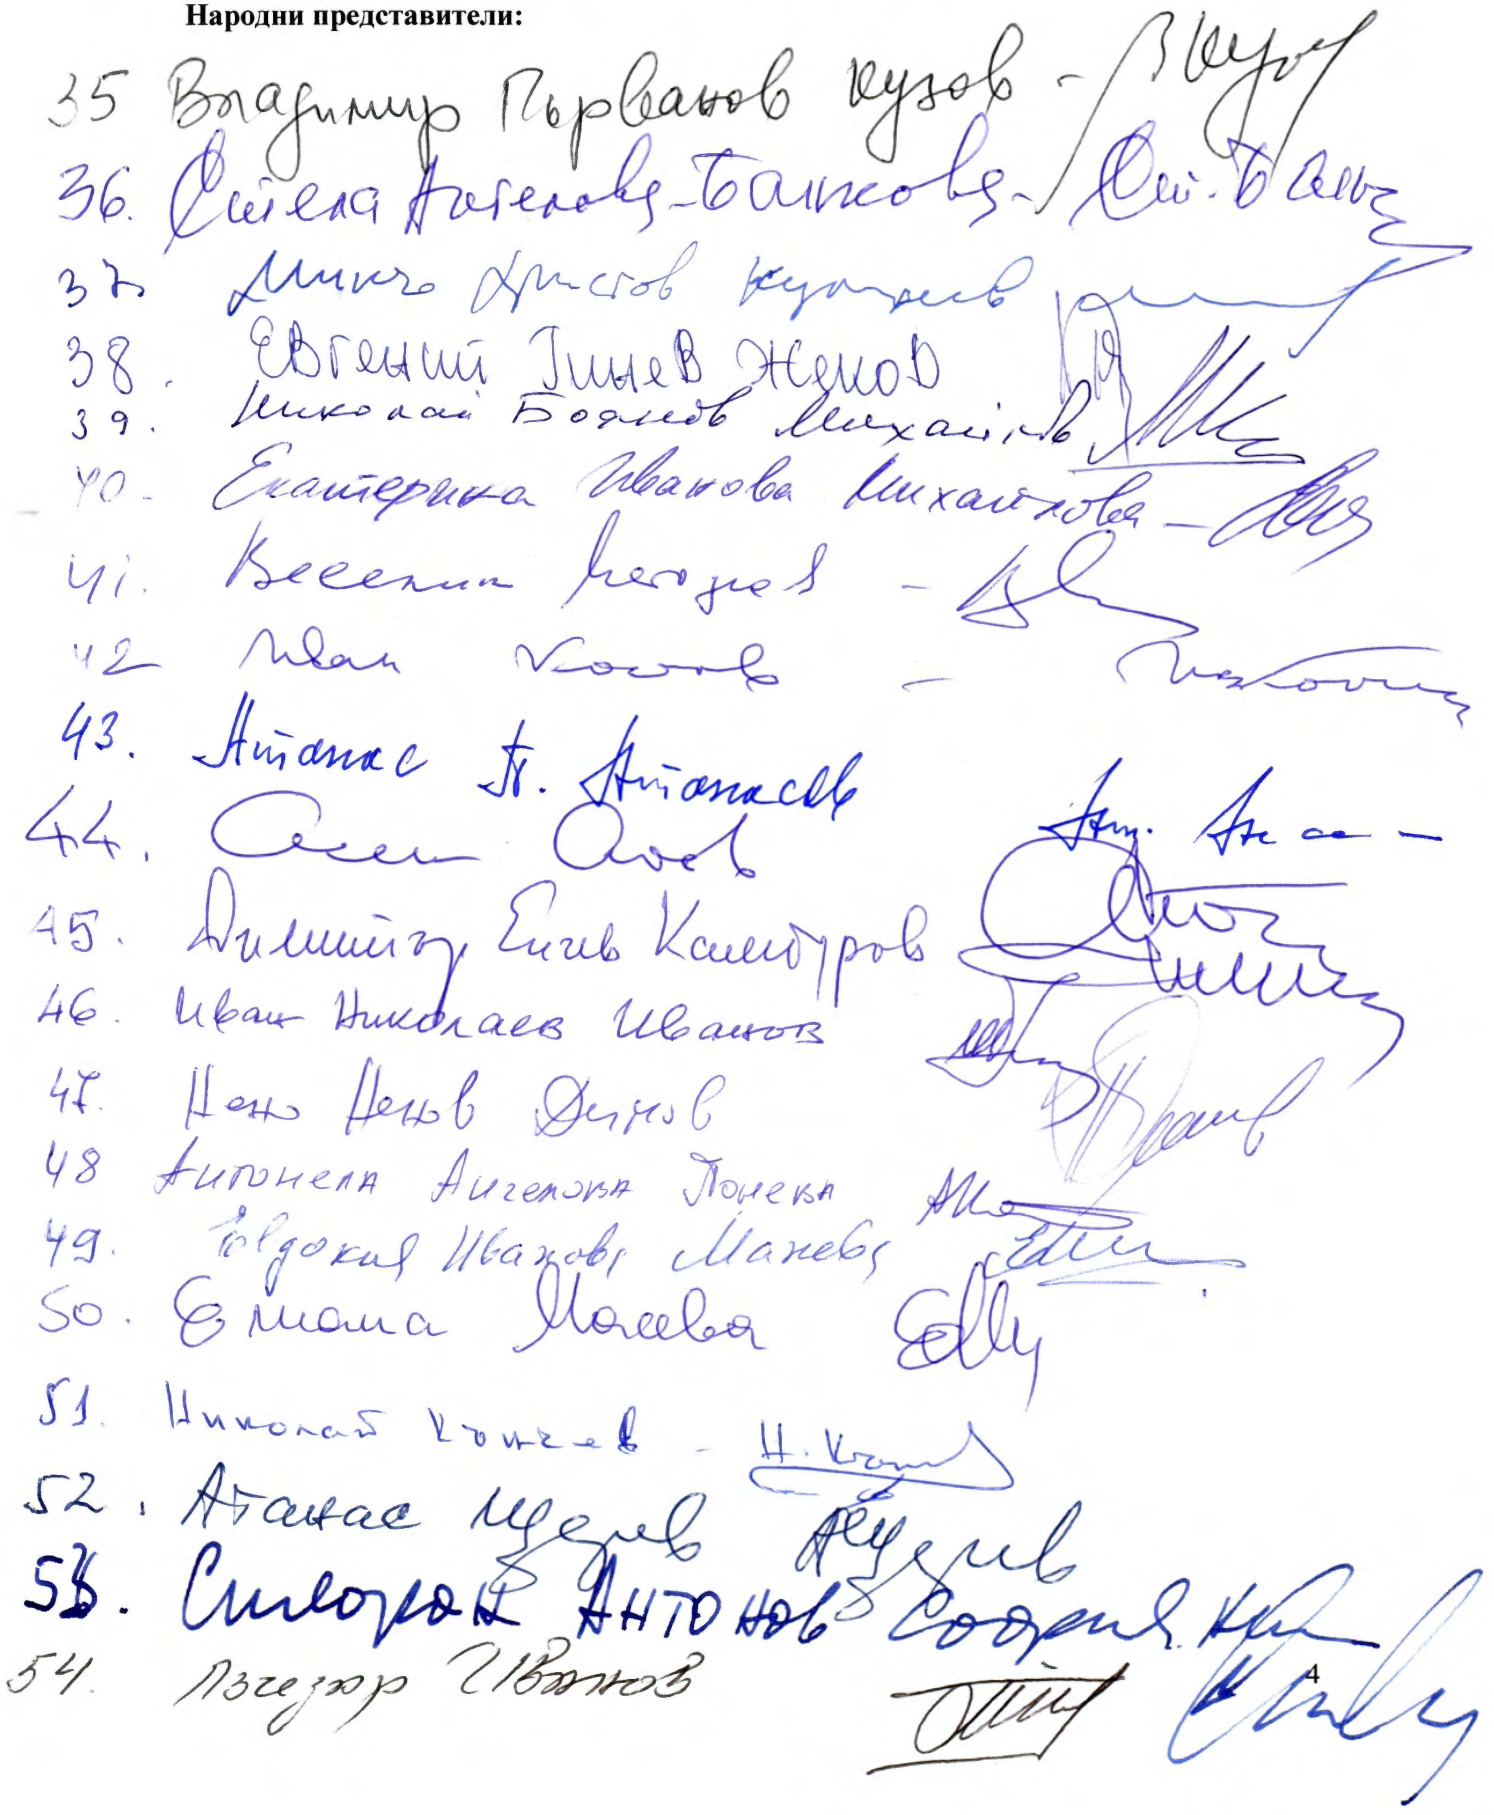 Народни представители:
35 Владимир Първанов Кузов -
36. Стела Ангелова-Банкова - Ст. Банк
37. Минчо Христов Куминев
38. ЕВГЕНИЙ Гинчев Жеков
39. Николай Боянов Михайлов
40. Екатерина Иванова Михайлова -
41. Веселин Методиев -
42 Иван Костов -
43. Атанас П. Атанасов
44. Асен Агов
45. Димитър Енчев Камбуров
46. Иван Николаев Иванов
47. Нено Ненов Димов
48 Антонела Ангелова Понева
49. Евдокия Иванова Манева
50. Елиана Масева
51. Николай Кънчев - Н. Кънчев
52. Атанас Щерев АЩерев
53. АНТОНОВ
54. Лъчезар Иванов
4